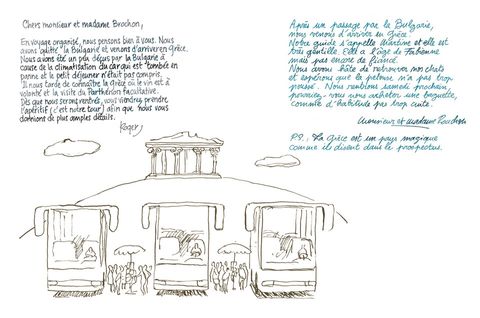 Chers monsieur et madame Brochon,
En voyage organisé, nous pensons bien à vous. Nous
avons quitté la Bulgarie et venons d'arriver en Grèce.
Nous avons été un peu déçus par la Bulgarie à
cause de la climatisation du car qui est tombée en
panne et le petit déjeuner n'était pas compris.
Il nous tarde de connaître la Grèce où le vin est à
volonté et la visite du Parthénon facultative.
Dès que nous serons rentrés, vous viendrez prendre
l'apéritif (c'est notre tour) afin que nous vous
donnions de plus amples détails.
Roger
Après un passage par la Bulgarie,
nous venons d'arriver en Grèce.
Notre guide s'appelle Martine et elle est
très gentille. Ell a l'âge de Fabienne
mais pas encore de fiancé.
Nous avons hâte de retrouver nos chats
et espérons que la pelouse n'a pas trop
poussé. Nous rentrons samedi prochain,
pourriez-vous nous acheter une baguette,
comme d'habitude pas trop cuite.
Monsieur et madame
P.S. La Grèce est un pays magique
comme ils disent dans le prospectus.